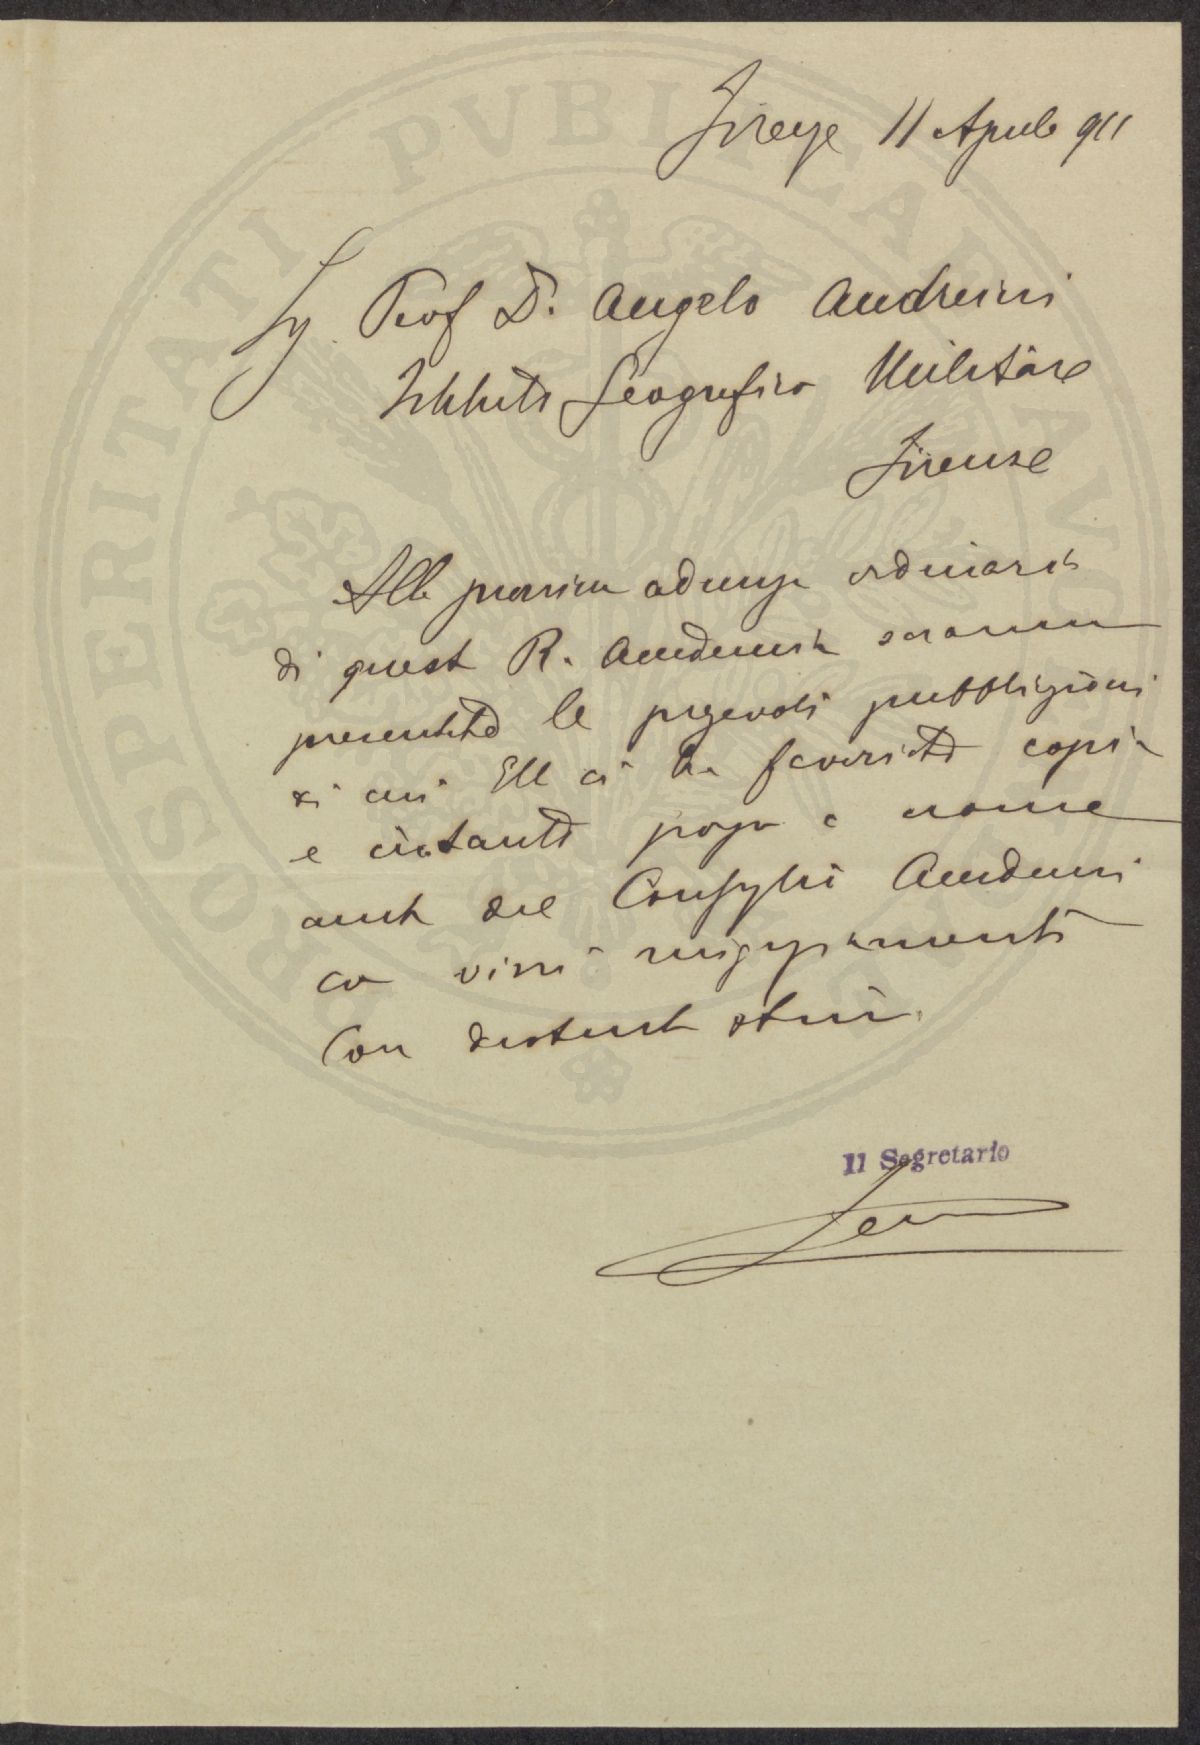 PROSPERITATI PVBLICAE AVGENDAE
Firenze 11 Aprile 911
Sig. Prof D. Angelo Andreini
Istituto Geografico Militare
Firenze
Alla prossima adunza ordinaria
di questa R. Accademia saranno
presentate le pregevoli pubblicazioni
di cui Ella ci ha favorito copia
e intanto porgo a nome
anche del Consiglio Accademi
co vivi ringraziamenti
Con distinta stima.
Il Segretario